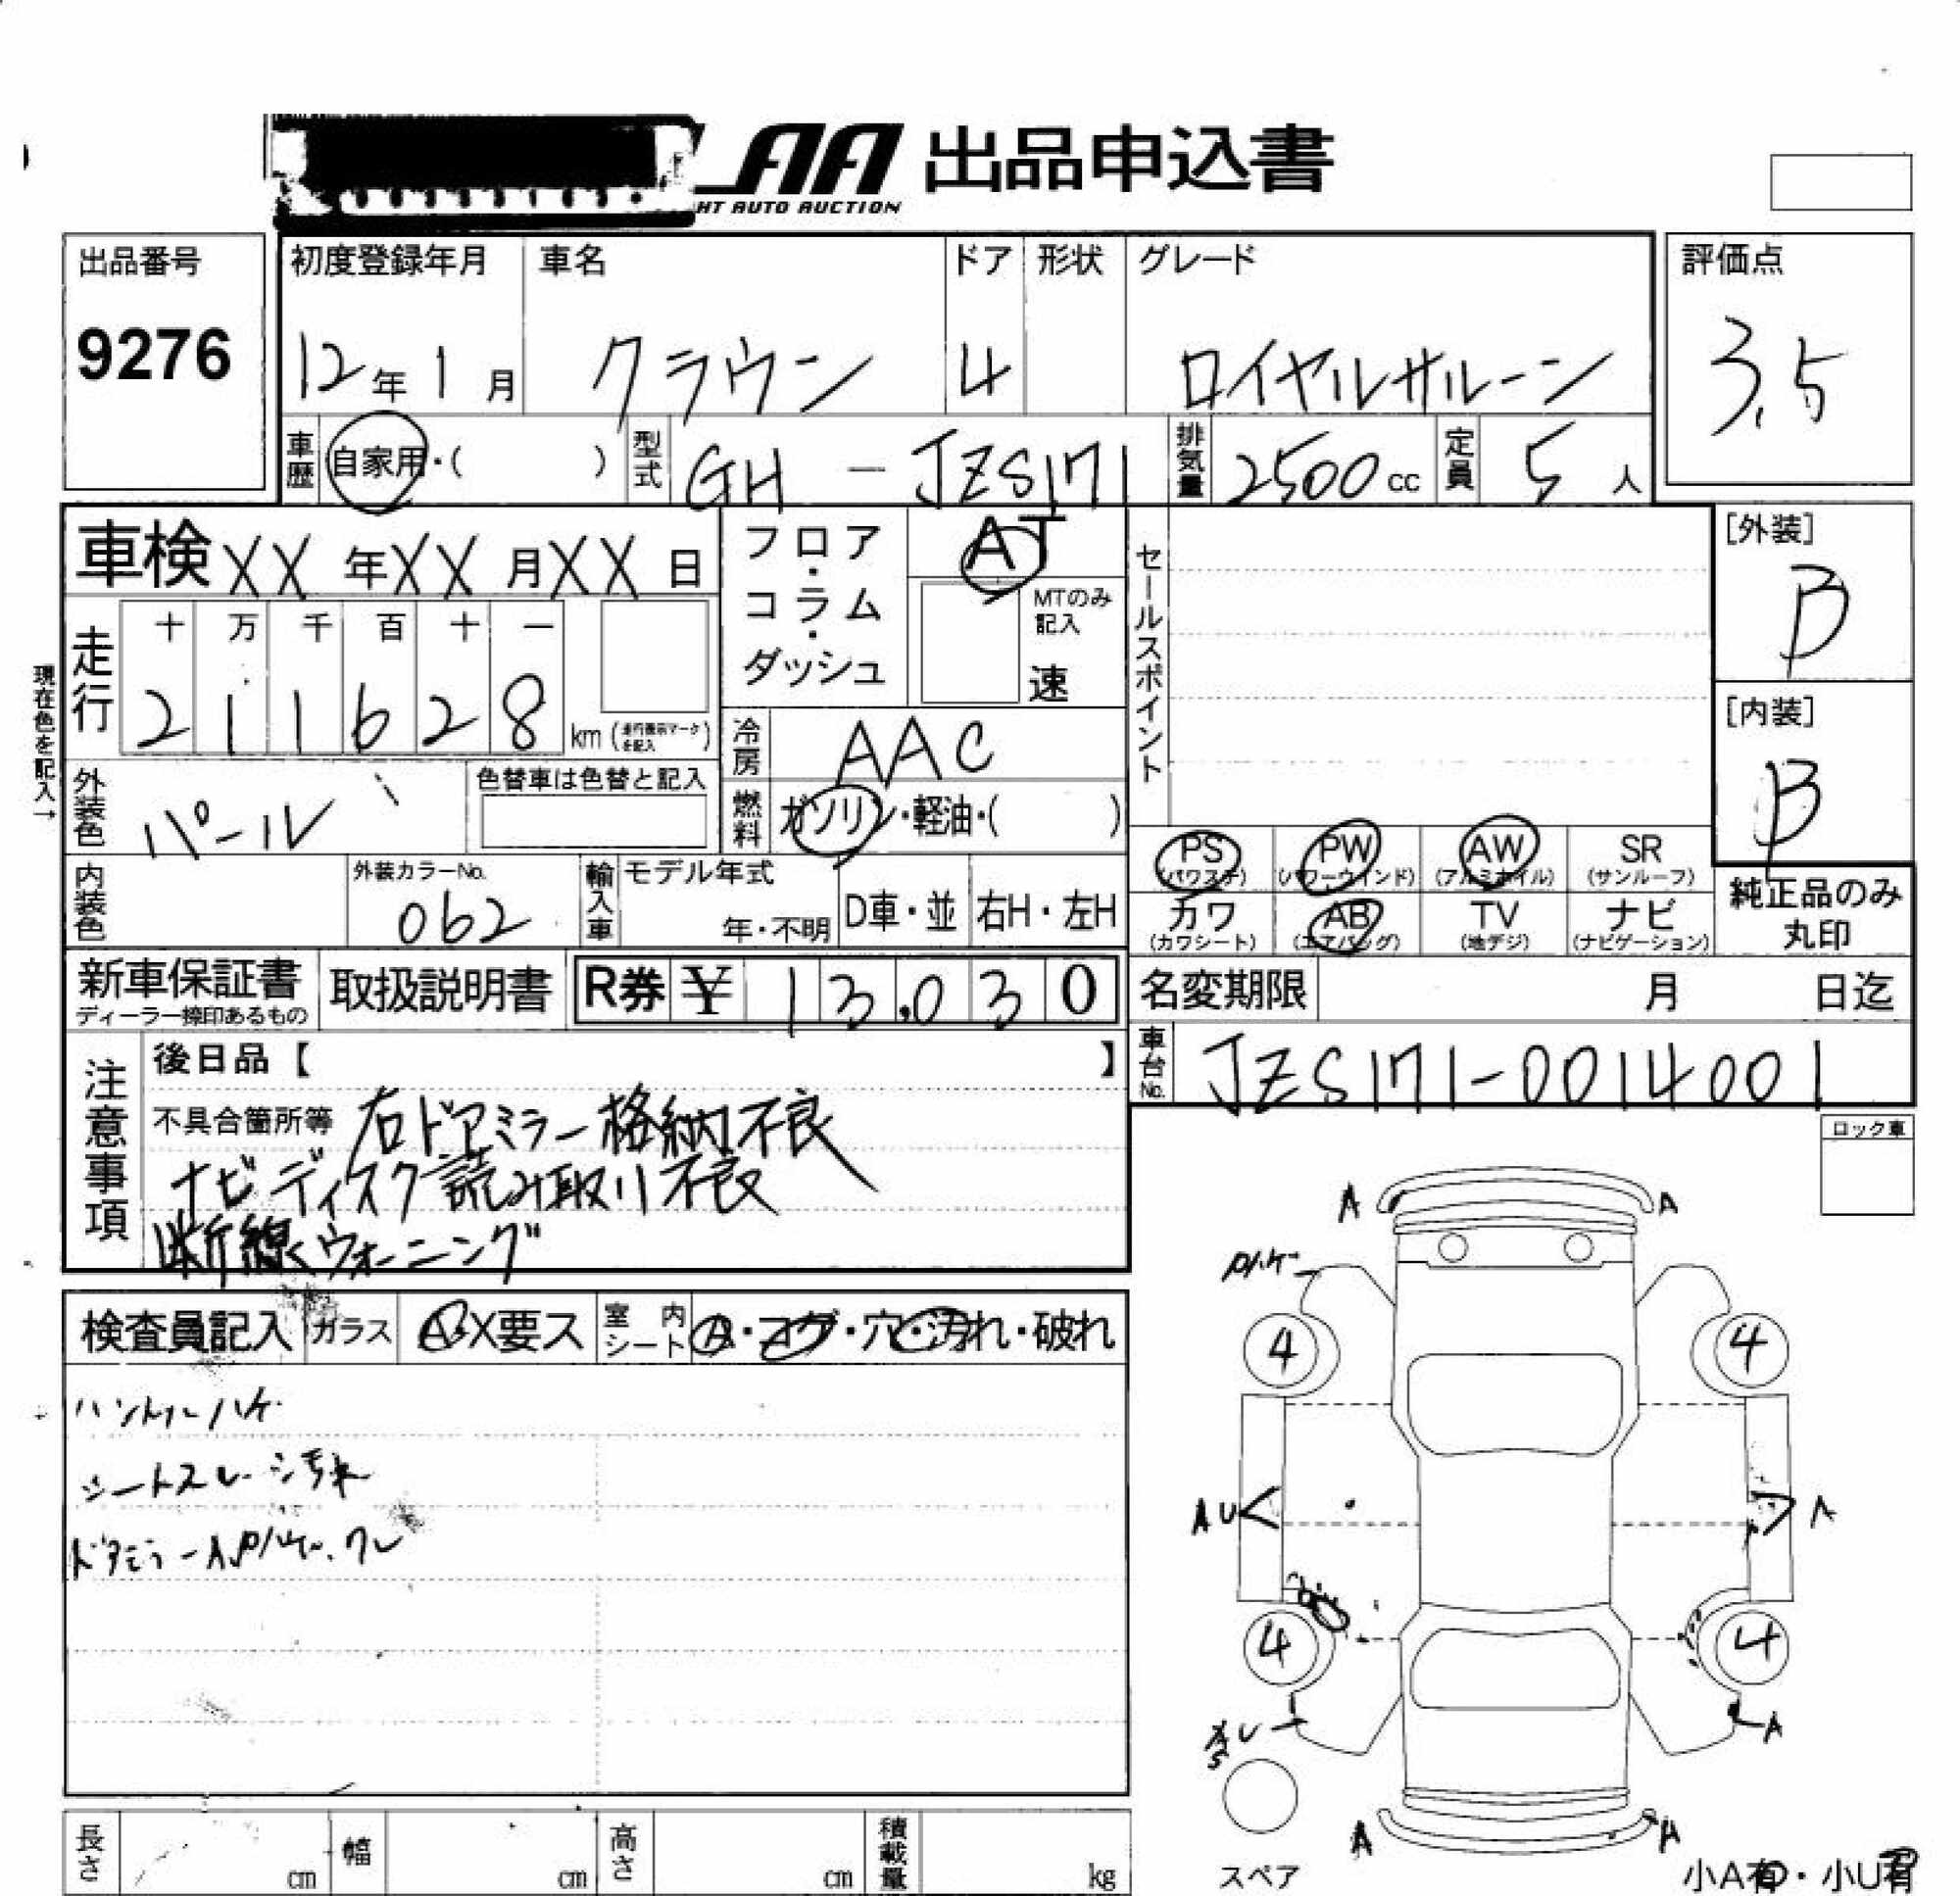 AA 出品申込書
HT AUTO AUCTION
出品番号 初度登録年月 車名 ドア 形状 グレード 評価点
9276 12年1月 クラウン 4 ロイヤルサルーン 3.5
車歴 自家用・( ) 型式 GH-JZS171 排気量 2500cc 定員 5人
車検 XX年XX月XX日
フロア・コラム・ダッシュ
AT
MTのみ記入
速
セールスポイント
[外装]
B
[内装]
B
現在色を記入→
走行 十 万 千 百 十 一
2 1 1 6 2 8 km(走行表示マークを記入)
冷房 AAC
外装色 パール 色替車は色替と記入
燃料 ガソリン・軽油・( )
内装色 外装カラーNo. 062 輸入車 モデル年式 年・不明 D車・並 右H・左H
PS (パワステ) PW (パワーウインド) AW (アルミホイル) SR (サンルーフ)
カワ (カワシート) AB (エアバッグ) TV (地デジ) ナビ (ナビゲーション)
純正品のみ丸印
新車保証書 ディーラー捺印あるもの 取扱説明書 R券 ¥ 13,030
名変期限 月 日迄
車台No. JZS171-0014001
注意事項
後日品【 】
不具合箇所等 右ドアミラー格納不良
ナビディスク読み取り不良
断線ウォーニング
ロック車
検査員記入 ガラス A・X要ス 室内シート A・コゲ・穴・汚れ・破れ
ハンドルハゲ
シートスレ・シミ汚れ
A A
4 4
AU A
4 4
A
A A
スペア
小A有・小U有
長さ cm 幅 cm 高さ cm 積載量 kg